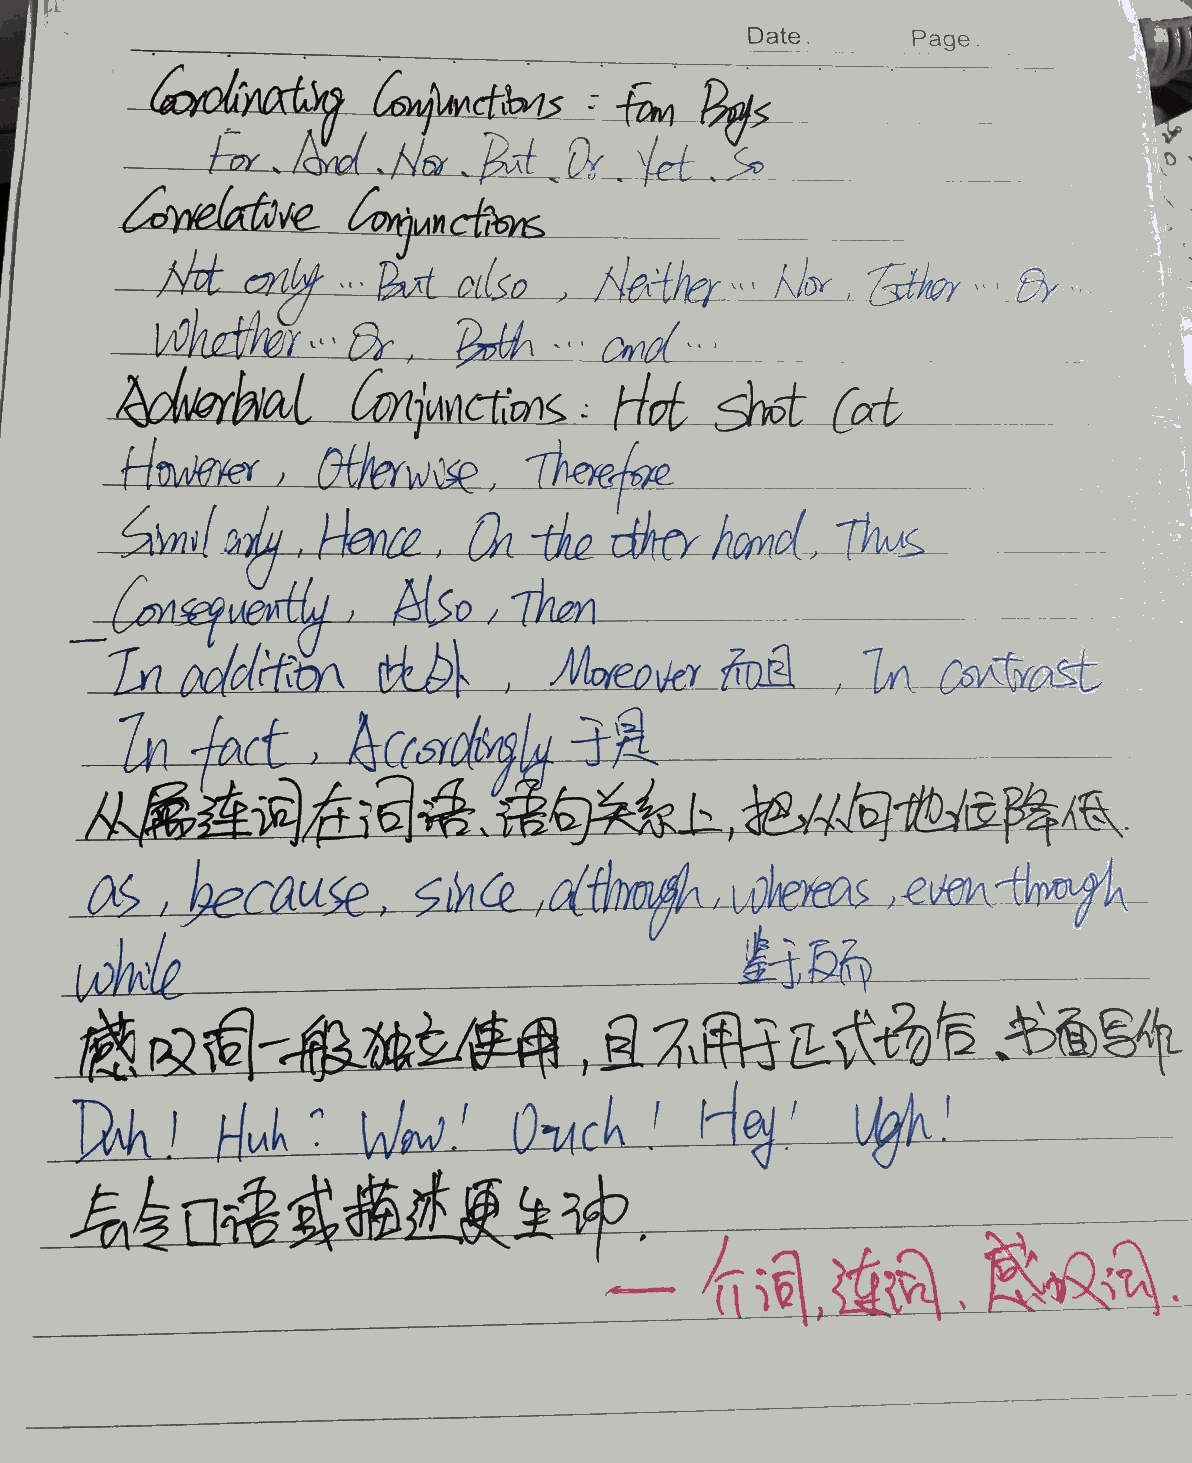 Date. Page.
Coordinating Conjunctions: Fan Boys
For、And、Nor、But、Or、Yet、So
Correlative Conjunctions
Not only … But also, Neither … Nor, Either … Or …
Whether … Or, Both … and …
Adverbial Conjunctions: Hot Shot Cat
However, Otherwise, Therefore
Similarly, Hence, On the other hand, Thus
Consequently, Also, Then
In addition 此外, Moreover 而且, In contrast
In fact, Accordingly 于是
从属连词在词语、语句关系上,把从句地位降低.
as, because, since, although, whereas, even though
while 鉴于,反而
感叹词一般独立使用,且不用于正式场合、书面写作
Duh! Huh? Wow! Ouch! Hey! Ugh!
与令口语或描述更生动.
— 介词,连词、感叹词.